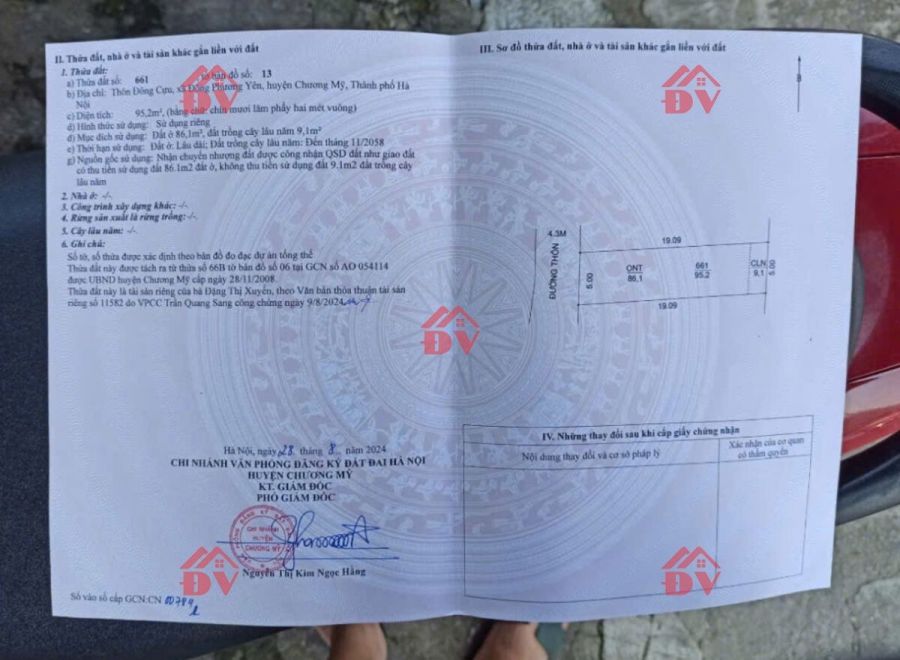 II. Thửa đất, nhà ở và tài sản khác gắn liền với đất
1. Thửa đất:
a) Thửa đất số: 661 , tờ bản đồ số: 13
b) Địa chỉ: Thôn Đông Cựu, xã Đông Phương Yên, huyện Chương Mỹ, Thành phố Hà
Nội
c) Diện tích: 95,2m², (bằng chữ: chín mươi lăm phẩy hai mét vuông)
d) Hình thức sử dụng: Sử dụng riêng
đ) Mục đích sử dụng: Đất ở 86,1m², đất trồng cây lâu năm 9,1m²
e) Thời hạn sử dụng: Đất ở: Lâu dài; Đất trồng cây lâu năm: Đến tháng 11/2058
g) Nguồn gốc sử dụng: Nhận chuyển nhượng đất được công nhận QSD đất như giao đất
có thu tiền sử dụng đất 86.1m2 đất ở, không thu tiền sử dụng đất 9.1m2 đất trồng cây
lâu năm
2. Nhà ở: -/-
3. Công trình xây dựng khác: -/-
4. Rừng sản xuất là rừng trồng: -/-
5. Cây lâu năm: -/-
6. Ghi chú:
Số tờ, số thửa được xác định theo bản đồ đo đạc dự án tổng thể
Thửa đất này được tách ra từ thửa số 66B tờ bản đồ số 06 tại GCN số AO 054114
được UBND huyện Chương Mỹ cấp ngày 28/11/2008.
Thửa đất này là tài sản riêng của bà Đặng Thị Xuyến, theo Văn bản thỏa thuận tài sản
riêng số 11582 do VPCC Trần Quang Sang công chứng ngày 9/8/2024
Hà Nội, ngày 28 tháng 8 năm 2024
CHI NHÁNH VĂN PHÒNG ĐĂNG KÝ ĐẤT ĐAI HÀ NỘI
HUYỆN CHƯƠNG MỸ
KT. GIÁM ĐỐC
PHÓ GIÁM ĐỐC
CHI NHÁNH
HUYỆN
CHƯƠNG MỸ
Nguyễn Thị Kim Ngọc Hằng
Số vào sổ cấp GCN:CN
III. Sơ đồ thửa đất, nhà ở và tài sản khác gắn liền với đất
B
4.3M
ĐƯỜNG THÔN
19.09
5.00
ONT
86.1
661
95.2
CLN
9.1
5.00
19.09
IV. Những thay đổi sau khi cấp giấy chứng nhận
Nội dung thay đổi và cơ sở pháp lý
Xác nhận của cơ quan
có thẩm quyền
ĐV
ĐV
ĐV
ĐV
ĐV